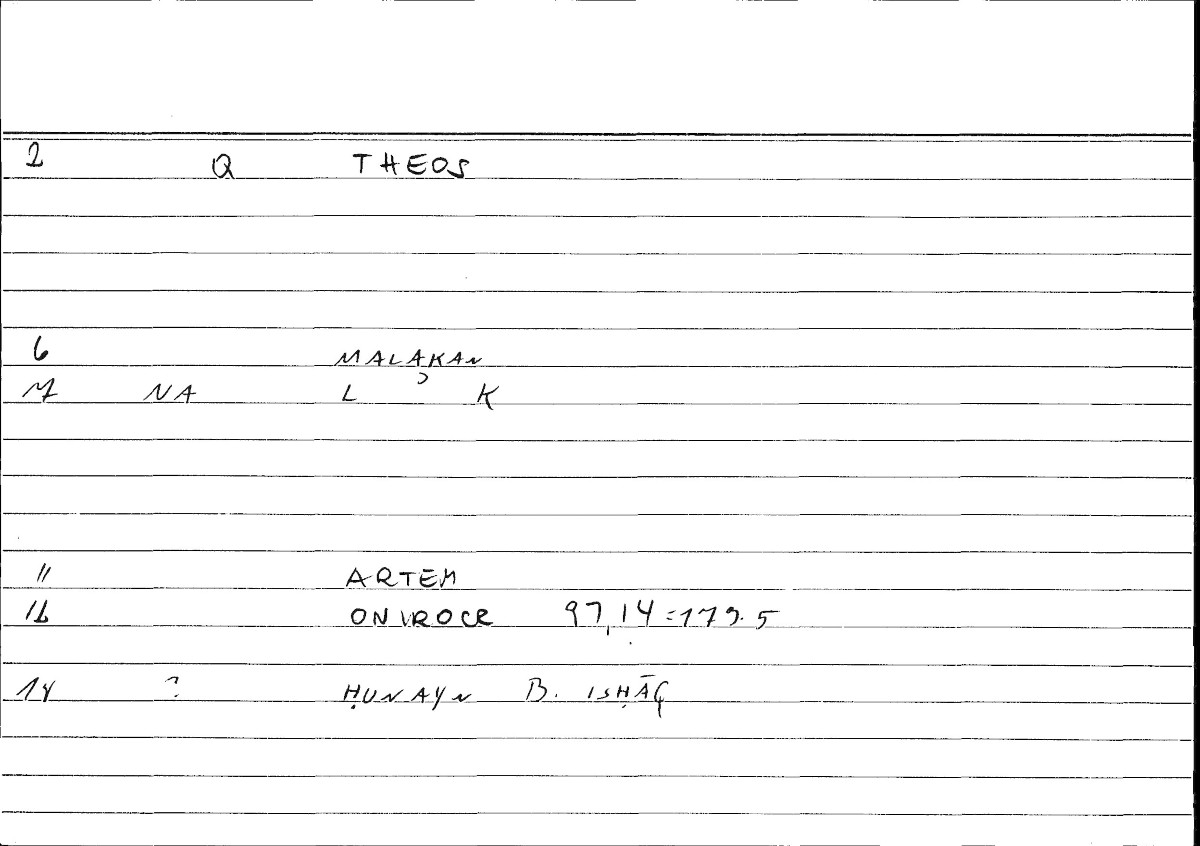 2 Q THEOS
6 MALAKAN
7 NA L K
11 ARTEM
ONIROCR 97,14 = 179.5
14 ? ḤUNAYN B. ISḤĀQ